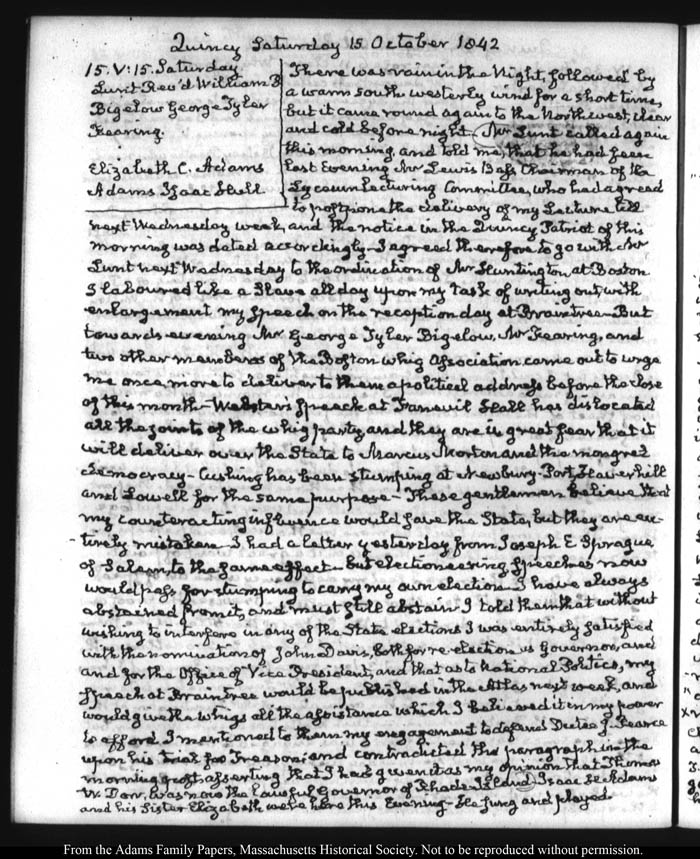 Quincy Saturday 15 October 1842
15. V: 15. Saturday
Lunt Rev'd William P
Bigelow George Tyler
Fearing.
Elizabeth C. Adams
Adams Isaac Hull
There was rain in the Night, followed by
a warm south westerly wind for a short time,
but it came round again to the Northwest, clear
and cold before night. Mr Lunt called again
this morning, and told me, that he had seen
last Evening Mr Lewis Bass Chairman of the
Lyceum lecturing Committee, who had agreed
to postpone the delivery of my Lecture till
next Wednesday week, and the notice in the Quincy Patriot of this
morning was dated accordingly. I agreed therefore to go with Mr
Lunt next Wednesday to the ordination of Mr Huntington, at Boston
I laboured like a Slave all day upon my task of writing out, with
enlargement my speech on the reception day at Braintree. But
towards evening Mr George Tyler Bigelow, Mr Fearing, and
two other members of the Boston Whig Association came out to urge
me once more to deliver to them a political address before the close
of this month. Webster's speech at Faneuil Hall has dislocated
all the joints of the whig party and they are in great fear that it
will deliver over the State to Marcus Morton and the mongrel
democracy. Cushing has been stumping at Newbury-Port, Haverhill
and Lowell for the same purpose. These gentlemen believe that
my counteracting influence would save the State, but they are en-
tirely mistaken. I had a letter yesterday from Joseph E Sprague
of Salem, to the same effect. but electioneering speeches now
would pass for stumping to carry my own election. I have always
abstained from it, and must still abstain. I told them that without
wishing to interfere in any of the State elections I was entirely satisfied
with the nomination of John Davis, both for re-election as Governor, and
and for the Office of Vice President, and that as to National Politics, my
speech at Braintree would be published in the Atlas next week, and
would give the whigs all the assistance which I believed it in my power
to afford. I mentioned to them my engagement to defend Dutee J. Pearce
upon his trial for Treason: and contradicted the paragraph in the
morning post, asserting that I had given it as my opinion that Thomas
W. Dorr, was now the lawful Governor of Rhode-Island. Isaac H. Adams
and his Sister Elizabeth were here this Evening. He sung and played
From the Adams Family Papers, Massachusetts Historical Society. Not to be reproduced without permission.